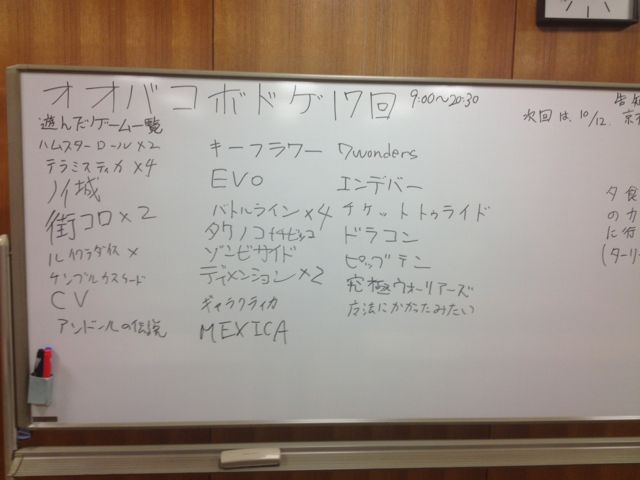 オオバコボドゲ17回 9:00〜20:30
告知
次回は、10/12.
遊んだゲーム一覧
ハムスターロール×2
テラミスティカ×4
ノイ城
街コロ×2
ケンブルカスケード
CV
アンドールの伝説
キーフラワー
EVO
バトルライン×4
タケノコ
ゾンビサイド
ディメンション×2
ギャラクティカ
MEXICA
7wonders
エンデバー
チケットトゥライド
ドラコン
ピッグテン
究極ウォーリアーズ
方法にかかったみたい
夕食
のカ
に行
(ターリー